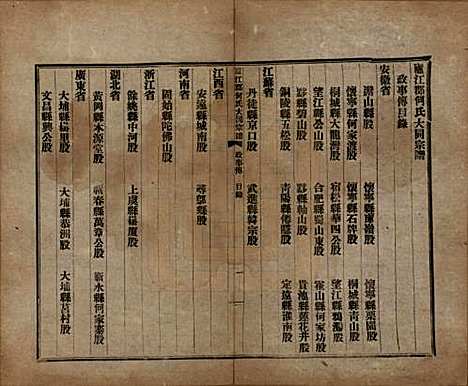 廬江郡何氏大同宗譜
政事傳目錄
安徽省
潛山縣股　懷寧縣廣嶺股　懷寧縣栗園股
懷寧縣何家渡股　懷寧縣石牌股　桐城縣青山股
桐城縣大龍灣股　宿松縣華四公股　望江縣鵝湯股
望江縣公山股　合肥縣蜀山東股　霍山縣何家坊股
黟縣碧山股　黟縣柚山股　貴池縣蓮花井股
銅陵縣五松股　青陽縣傅隱股　定遠縣淮南股
江蘇省
丹徒縣京口股　武進縣韓宗股
廬江郡何氏大同宗譜　政事傳　目錄　一
江西省
安遠縣城南股　尋鄔縣股
河南省
固始縣陀佛山股
浙江省
餘姚縣中河股　上虞縣楊廈股
湖北省
黃岡縣本源堂股　蘄春縣萬章公股　蘄水縣何家寨股
廣東省
大埔縣楊里股　大埔縣恭洲股　大埔縣莒村股
文昌縣興公股